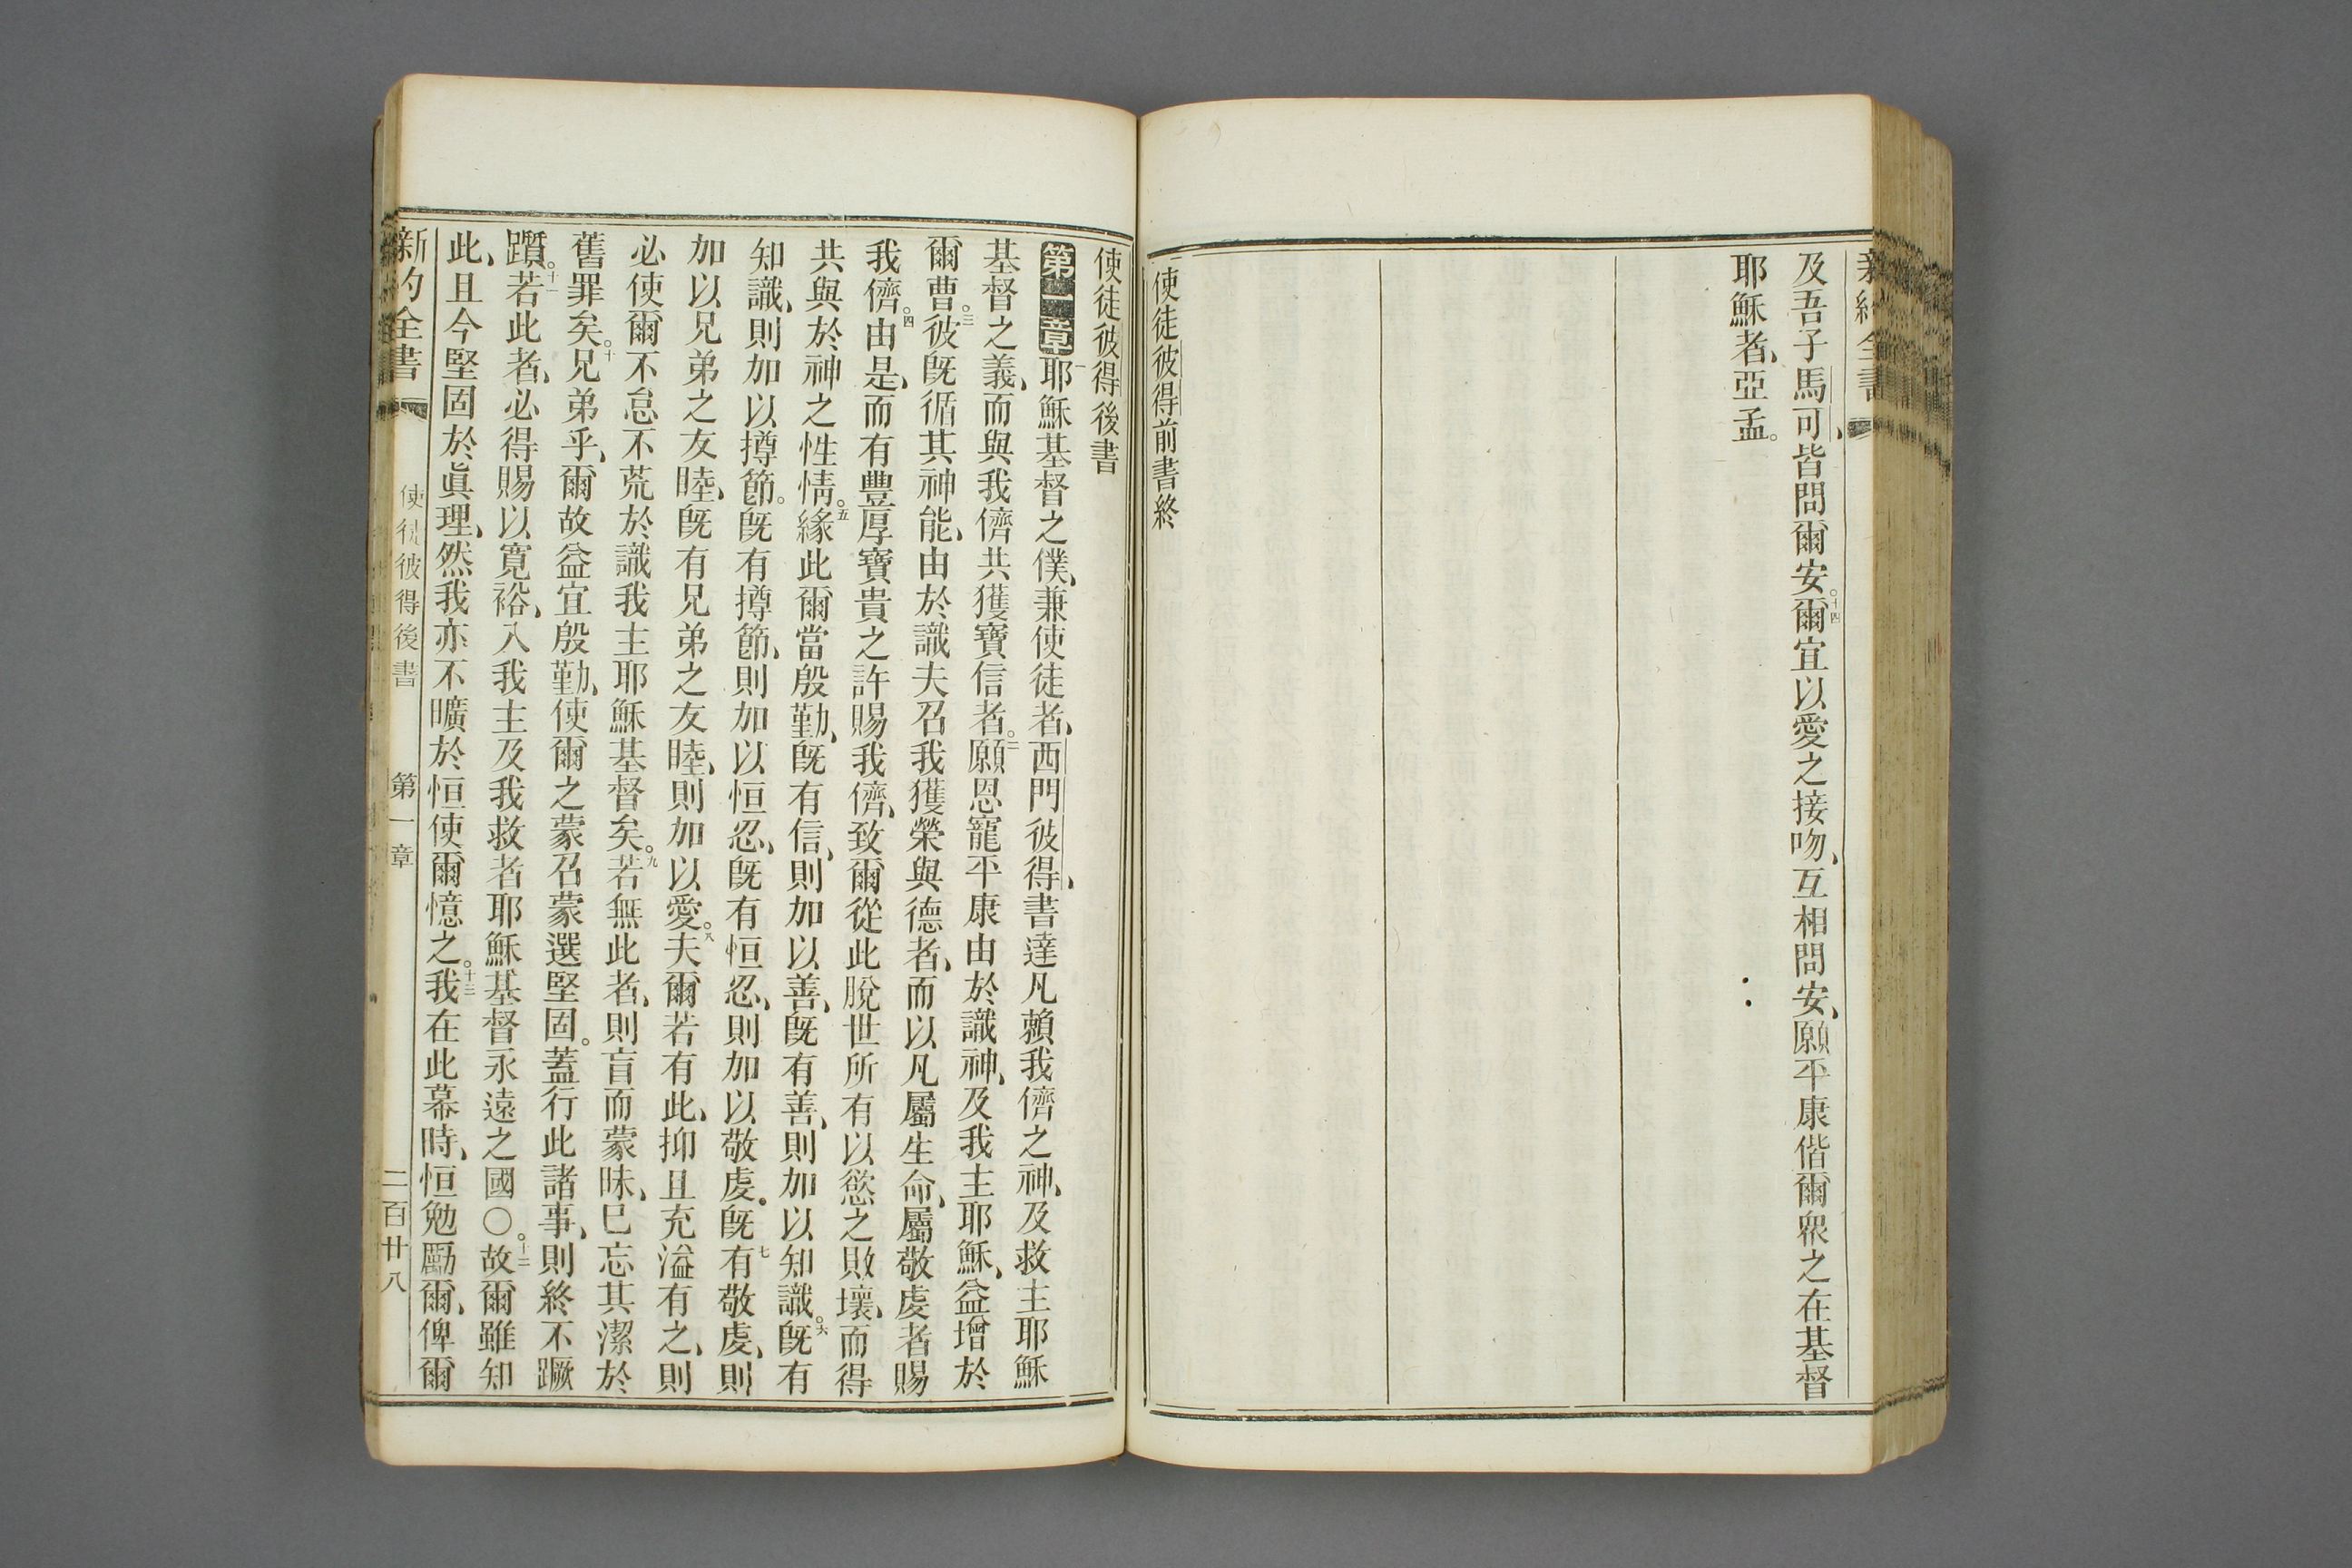 新約全書
及吾子馬可、皆問爾安。十四爾宜以愛之接吻、互相問安、願平康偕爾衆之在基督
耶穌者、亞孟。
使徒彼得前書終
使徒彼得後書
第一章一耶穌基督之僕、兼使徒者、西門彼得、書達凡賴我儕之神、及救主耶穌
基督之義、而與我儕共獲寶信者。二願恩寵平康由於識神、及我主耶穌、益增於
爾曹。三彼旣循其神能、由於識夫召我獲榮與德者、而以凡屬生命、屬敬虔者賜
我儕。四由是、而有豐厚寶貴之許賜我儕、致爾從此脫世所有以慾之敗壞、而得
共與於神之性情。五緣此爾當殷勤、旣有信、則加以善、旣有善、則加以知識。六旣有
知識、則加以撙節。旣有撙節、則加以恒忍、旣有恒忍、則加以敬虔。七旣有敬虔、則
加以兄弟之友睦、旣有兄弟之友睦、則加以愛。八夫爾若有此、抑且充溢有之、則
必使爾不怠不荒於識我主耶穌基督矣。九若無此者、則盲而蒙昧、已忘其潔於
舊罪矣。十兄弟乎、爾故益宜殷勤、使爾之蒙召蒙選堅固。蓋行此諸事、則終不蹶
躓。十一若此者、必得賜以寬裕、入我主及我救者耶穌基督永遠之國〇十二故爾雖知
此、且今堅固於眞理、然我亦不曠於恒使爾憶之。十三我在此幕時、恒勉勵爾、俾爾
新約全書 使徒彼得後書 第一章 二百廿八